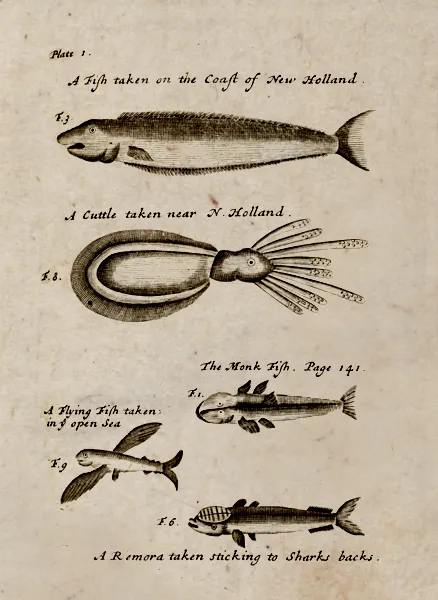 Plate 1.
A Fish taken on the Coast of New Holland.
F.3
A Cuttle taken near N. Holland.
F.8.
The Monk Fish. Page 141.
F.1.
A Flying Fish taken
in yͤ open Sea
F.9
F.6.
A Remora taken sticking to Sharks backs.